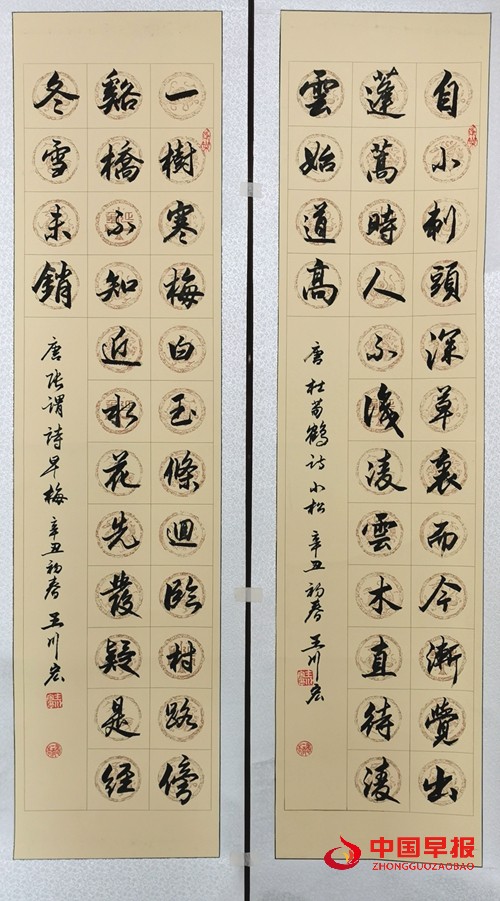 自小刺頭深草裏而今漸覺出
蓬蒿時人不識凌雲木直待凌
雲始道高
唐杜荀鶴詩小松 辛丑初春 王川宏
一樹寒梅白玉條迴臨村路傍
谿橋不知近水花先發疑是經
冬雪未銷
唐張謂詩早梅 辛丑初春 王川宏
中国早报
ZHONGGUOZAOBAO